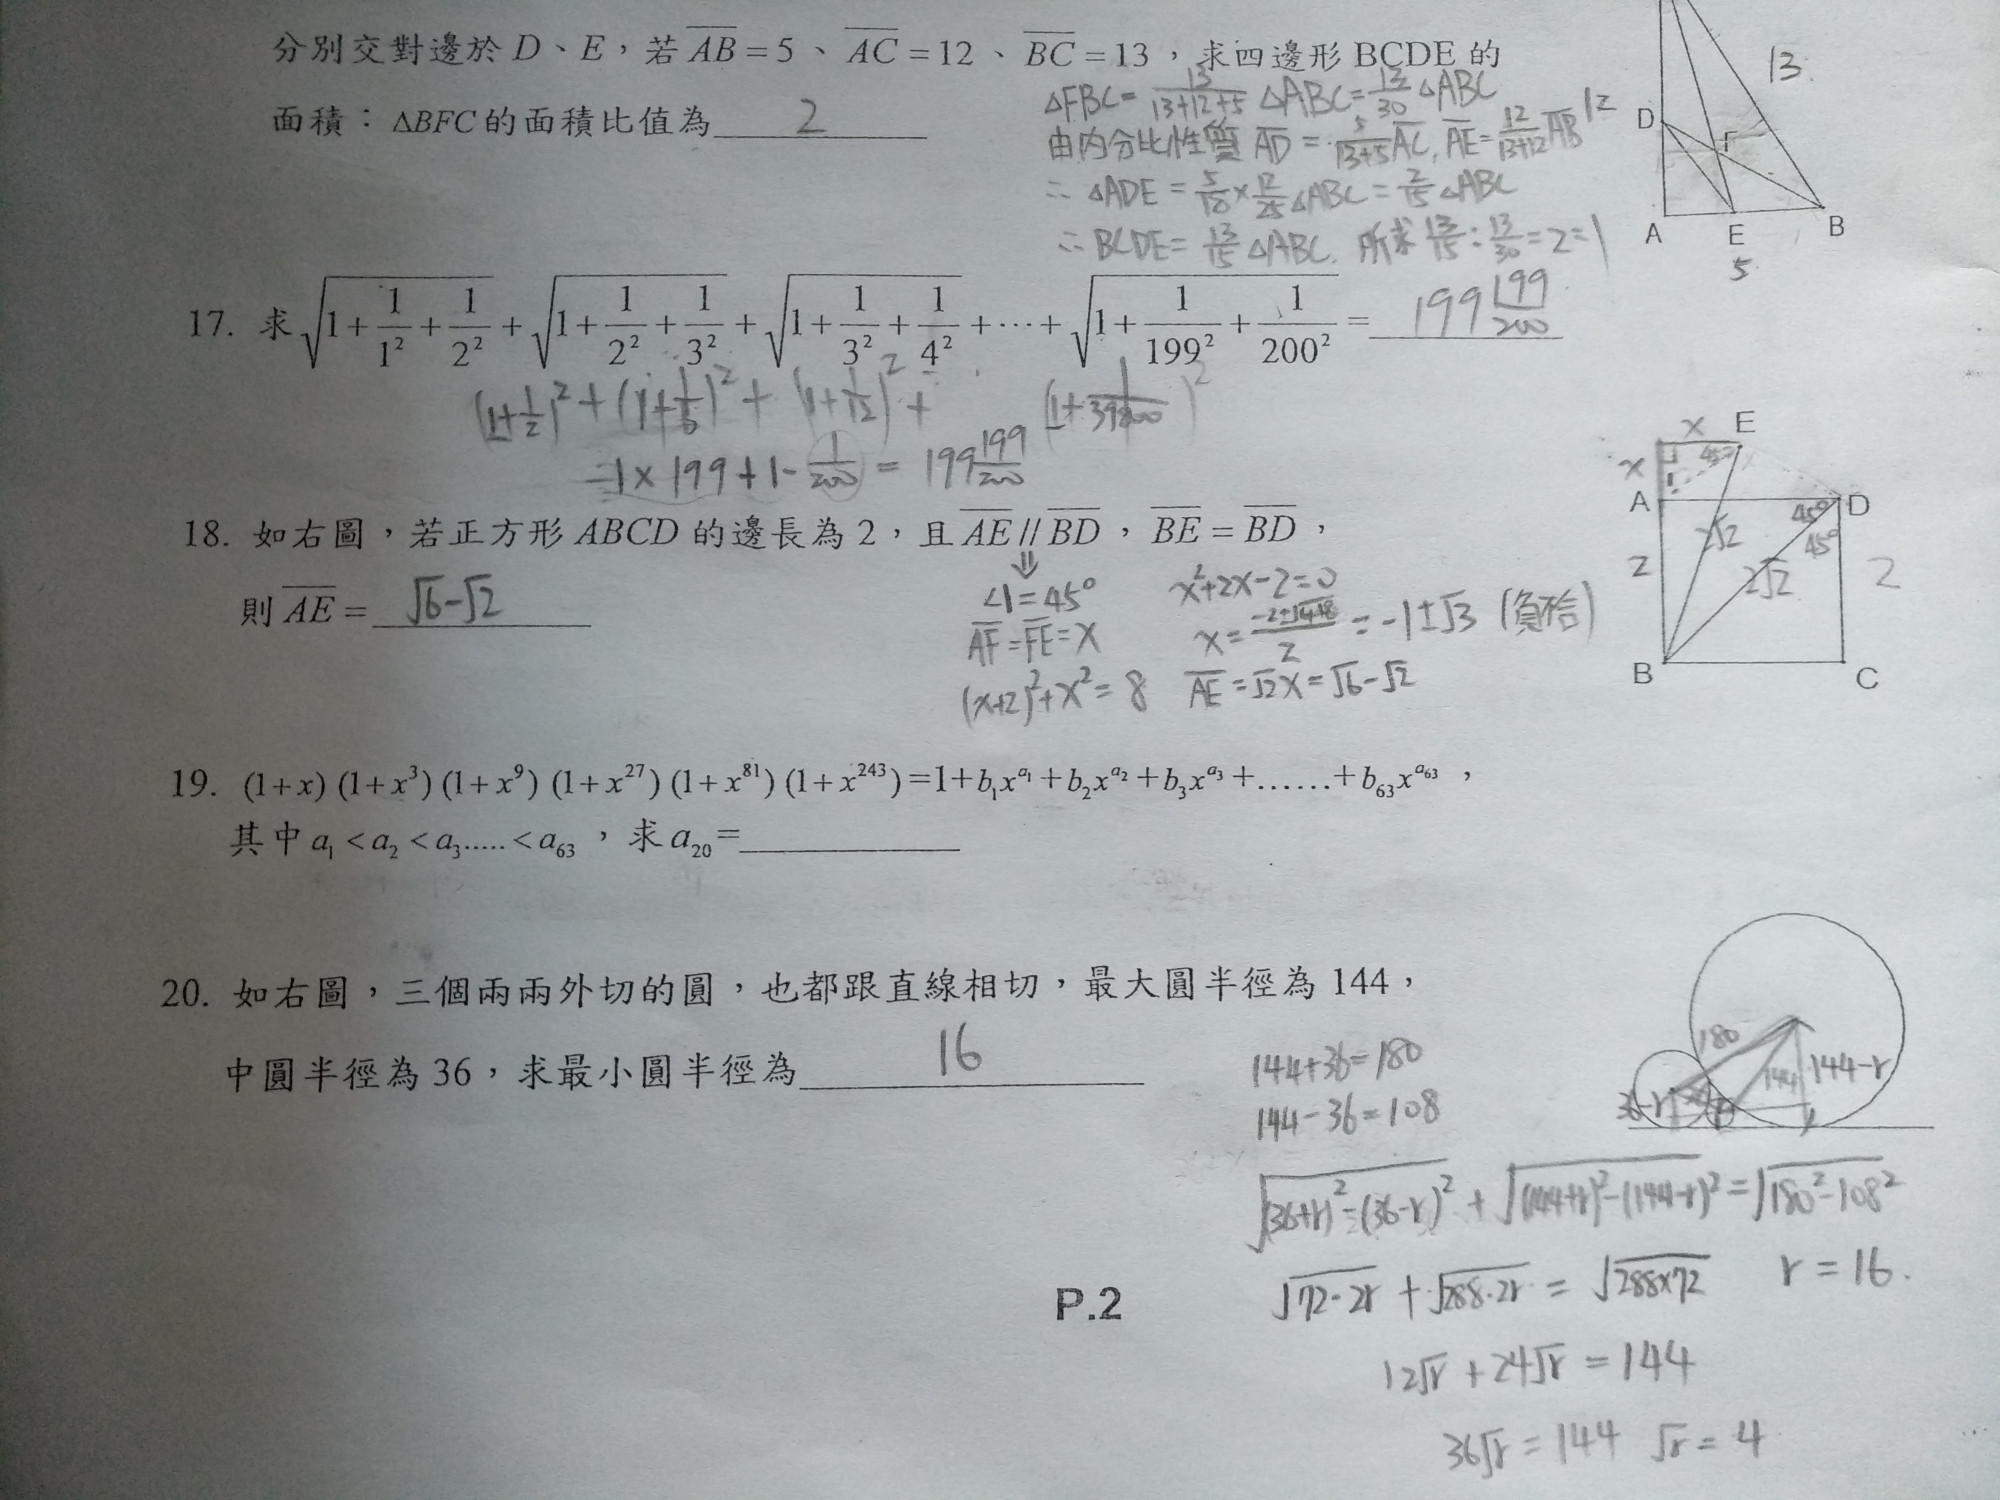 分別交對邊於 D、E，若 AB = 5、AC = 12、BC = 13，求四邊形 BCDE 的
面積：ΔBFC 的面積比值為 2
△FBC = 13/(13+12+5) △ABC = 13/30 △ABC
由內分比性質 AD = 5/(13+5) AC, AE = 12/(13+12) AB
∴ △ADE = 5/18 × 12/25 △ABC = 2/15 △ABC
∴ BCDE = 13/15 △ABC. 所求 13/15 : 13/30 = 2 = 1
13
12
D
F
A
E
B
5
17. 求 √(1+1/1²+1/2²) + √(1+1/2²+1/3²) + √(1+1/3²+1/4²) + ⋯ + √(1+1/199²+1/200²) = 199 199/200
(1+1/2)² + (1+1/6)² + (1+1/12)² + (1+1/39800)²
= 1 × 199 + 1 - 1/200 = 199 199/200
18. 如右圖，若正方形 ABCD 的邊長為 2，且 AE // BD，BE = BD，
則 AE = √6-√2
⇓
∠1 = 45°
AF = FE = x
(x+2)² + x² = 8
x²+2x-2=0
x = (-2±√(4+8))/2 = -1±√3 (負不合)
AE = √2x = √6-√2
x
E
x
45°
1
A
45°
D
45°
2
2√2
2√2
2
B
C
19. (1+x) (1+x³) (1+x⁹) (1+x²⁷) (1+x⁸¹) (1+x²⁴³) = 1+b₁x^a₁ + b₂x^a₂ + b₃x^a₃ + ...... + b₆₃x^a₆₃，
其中 a₁ < a₂ < a₃..... < a₆₃，求 a₂₀=
20. 如右圖，三個兩兩外切的圓，也都跟直線相切，最大圓半徑為 144，
中圓半徑為 36，求最小圓半徑為 16
144+36=180
144-36=108
180
144
144-r
36-r
√((36+r)²-(36-r)²) + √((144+r)²-(144-r)²) = √(180²-108²)
√(72·2r) + √(288·2r) = √(288×72) r = 16.
12√r + 24√r = 144
36√r = 144 √r = 4
P.2